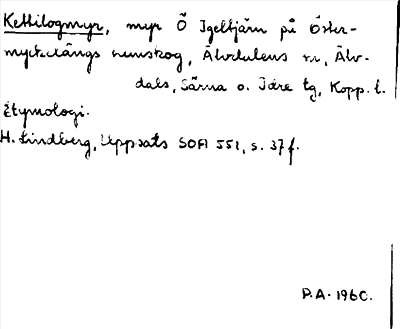 Kettilogmyr, myr Ö Igeltjärn på Öster-
myckelängs hemskog, Älvdalens sn, Älv-
dals, Särna o. Idre tg, Kopp. l.
Etymologi.
H. Lindberg, Uppsats SOFI 552, s. 37 f.
P.A. 1960.